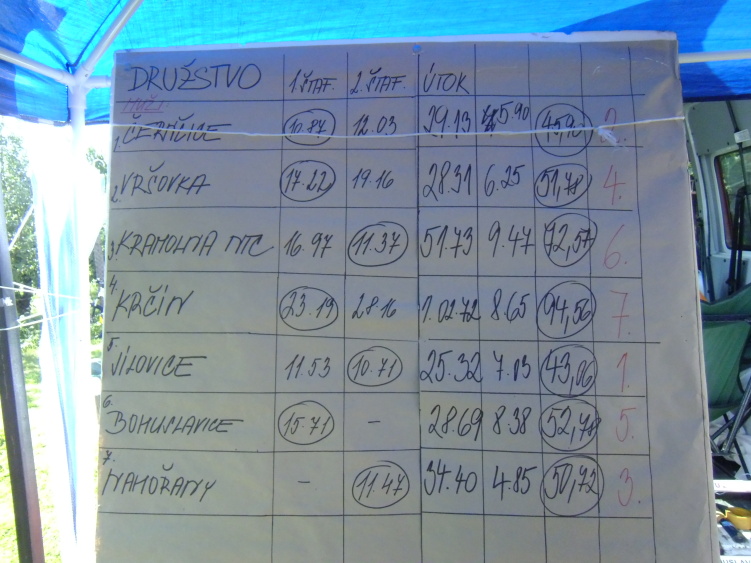 DRUŽSTVO 1. ŠTAF. 2. ŠTAF. ÚTOK
MUŽI
1. ČERNČICE 10.87 12.03 29.13 5.90 45,90 2.
2. VRŠOVKA 17.22 19.16 28.31 6.25 51,78 4.
3. KRAMOLNA MTC 16.97 11.37 51.73 9.47 72,57 6.
4. KRČÍN 23.19 28.16 1.02.72 8.65 94,56 7.
5. JÍLOVICE 11.53 10.71 25.32 7.03 43,06 1.
6. BOHUSLAVICE 15.71 – 28.69 8.38 52,78 5.
7. NAHOŘANY – 11.47 34.40 4.85 50,72 3.